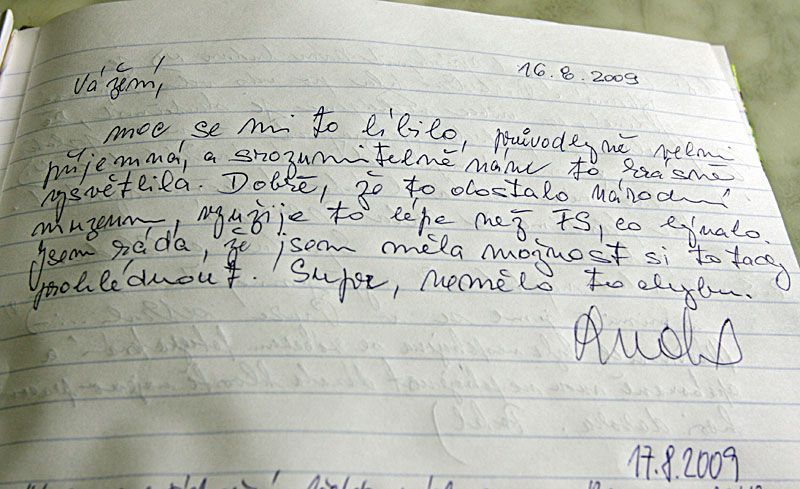 16.8.2009
Vážení,
moc se mi to líbilo, průvodkyně velmi
příjemná, a srozumitelně nám to krásně
vysvětlila. Dobře, že to dostalo národní
muzeum, využije to lépe než FS, co bývalo.
Jsem ráda, že jsem měla možnost si to tady
prohlédnout. Super, nemělo to chybu.
17.8.2009